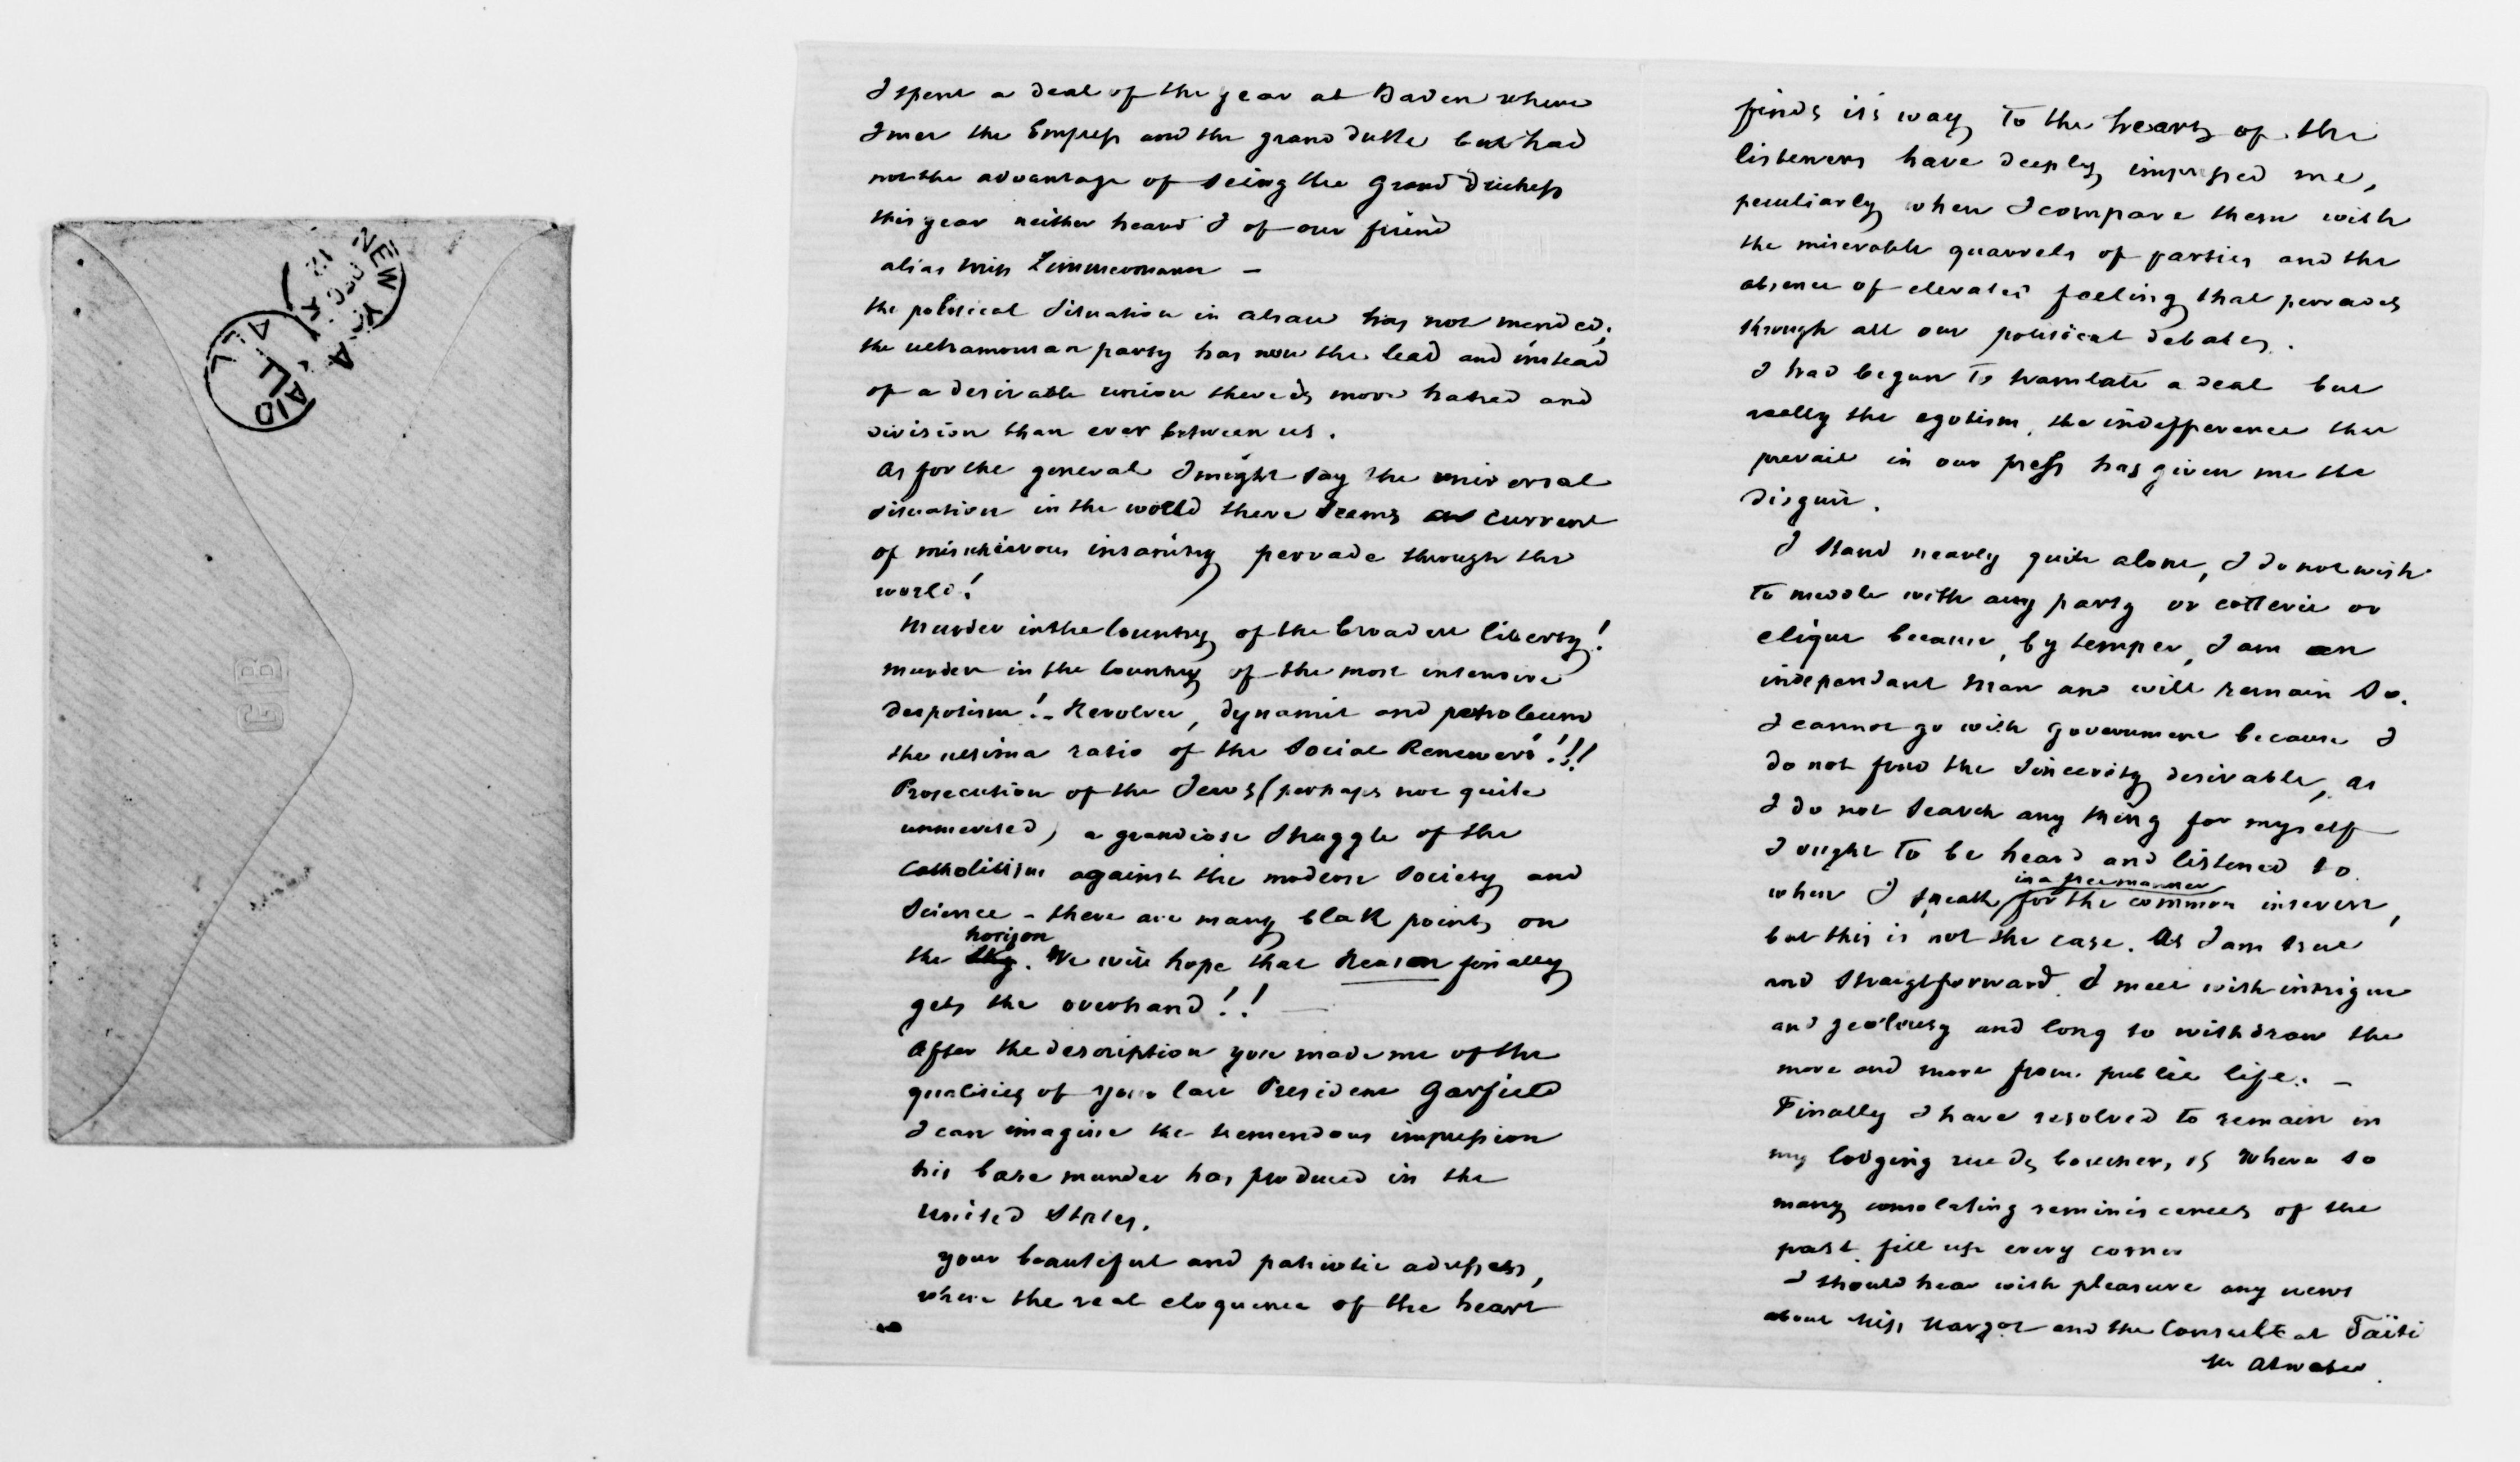 NEW Y
DEC
12
PAID
ALL
GB
I spent a deal of the year at Baden where
I met the Empress and the grand duke but had
not the advantage of seing the Grand Duchess
this year neither heard I of our friend
alias Miss Zimmermann —
the political situation in alsace has not mended;
the ultramontan party has now the lead and instead
of a desirable union there is more hatred and
division than ever between us.
As for the general I might say the universal
situation in the world there seems a current
of mischievous insanity pervade through the
world!
Murder in the Country of the broadest liberty!
murder in the Country of the most intensive
despotism! – Revolver, dynamit and petroleum
the ultima ratio of the Social Renewers!!!
Prosecution of the Jews (perhaps not quite
unmerited) a grandiose struggle of the
Catholitism against the modern Society and
Science – there are many blak points on
the sky. horizon We will hope that Reason finally
gets the overhand!! —
After the description you made me of the
qualities of your late President Garfield
I can imagine the tremendous impression
his base murder has produced in the
United States.
Your beautiful and patriotic adresses,
where the real eloquence of the heart
finds it's way to the hearts of the
listeners have deeply impressed me,
peculiarly when I compare them with
the miserable quarrels of parties and the
absence of elevated feeling that pervades
through all our political debates.
I had begun to translate a deal but
really the egotism, the indefference that
prevail in our press has given me the
disgust.
I stand nearly quite alone, I do not wish
to meddle with any party or cotterie or
clique because, by temper, I am an
independant Man and will remain so.
I cannot go with government because I
do not find the sincerity desirable, as
I do not search any thing for myself
I ought to be heard and listened to
in a free manner
when I speak for the common interest,
but this is not the case. As I am true
and straigtforward I meet with intrigue
and jealousy and long to withdraw the
more and more from public life. —
Finally I have resolved to remain in
my lodging rue des 15 where so
many consolating reminiscences of the
past fill up every corner
I should hear with pleasure any news
about Miss and the Consul at Taïti
Mr Atwater.